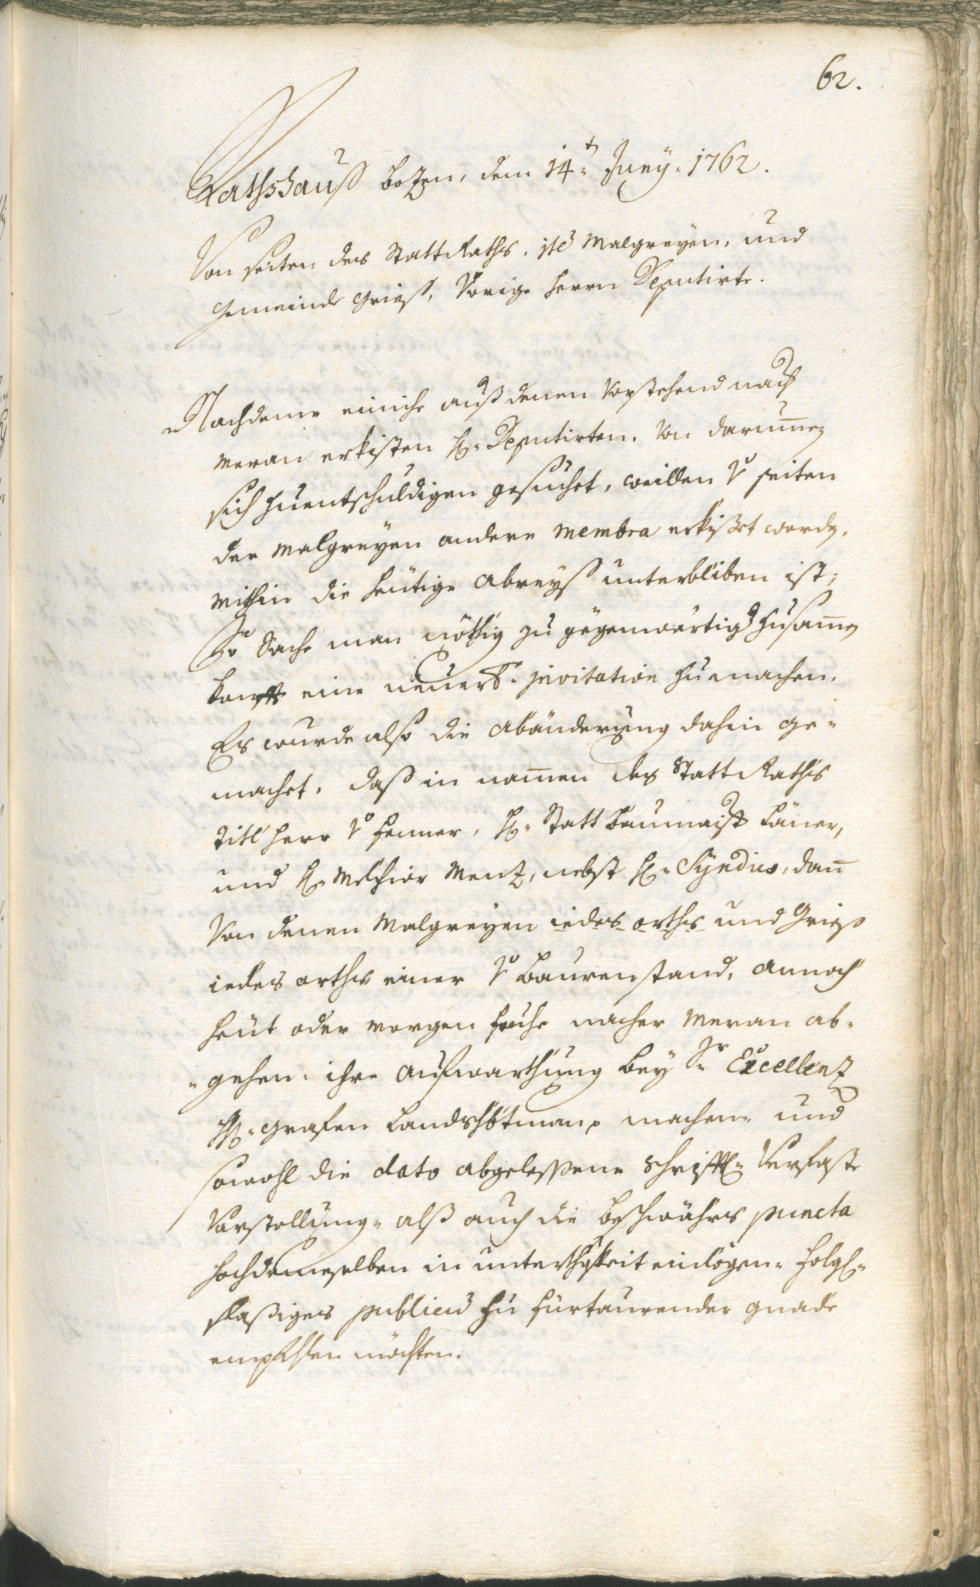 62.
Rathshauß Bozen, den 14.t Juny. 1762.
Von seiten des Statt Raths, jtē Malgreyen, und
Gemeinde Grieß, Vorige Herrn Deputirte.
Nachdeme einiche auß denen vorstehend nach
Meran erkisten H: Deputirten. Von darumen
sich zuentschuldigen gesuchet, weillen v seiten
der Malgreyen andere Membra erkißet worden,
mithin die heutige Abreyß unterbliben ist;
So Sache man nöthig zu gegenwärtigē zusamen
konfft eine neuere invitation zumachen.
Es wurde also die Abänderung dahin ge-
machet, daß in namen des Statt Raths
Titl Herr v Henner, H: Statt Baumaist
und H: Melchior Menz, nebst H: Syndico, dañ
von denen Malgreyen iedes orths und Grieß
iedes orths einer v Baurenstand, annoch
heut oder morgen fruhe nacher Meran ab-
-gehen. ihre Aufwarthung bey Sr Excellenz
H: Grafen Landshbtman machen und
sowohl die dato abgelessene schrifftl: Verfaste
Vorstellung, alß auch die beschwährs puncta
hochdemselben in unterthgkeit einlögen. folgl:
saßiges publicū zu fürtaurender gnade
empfehlen möchten.